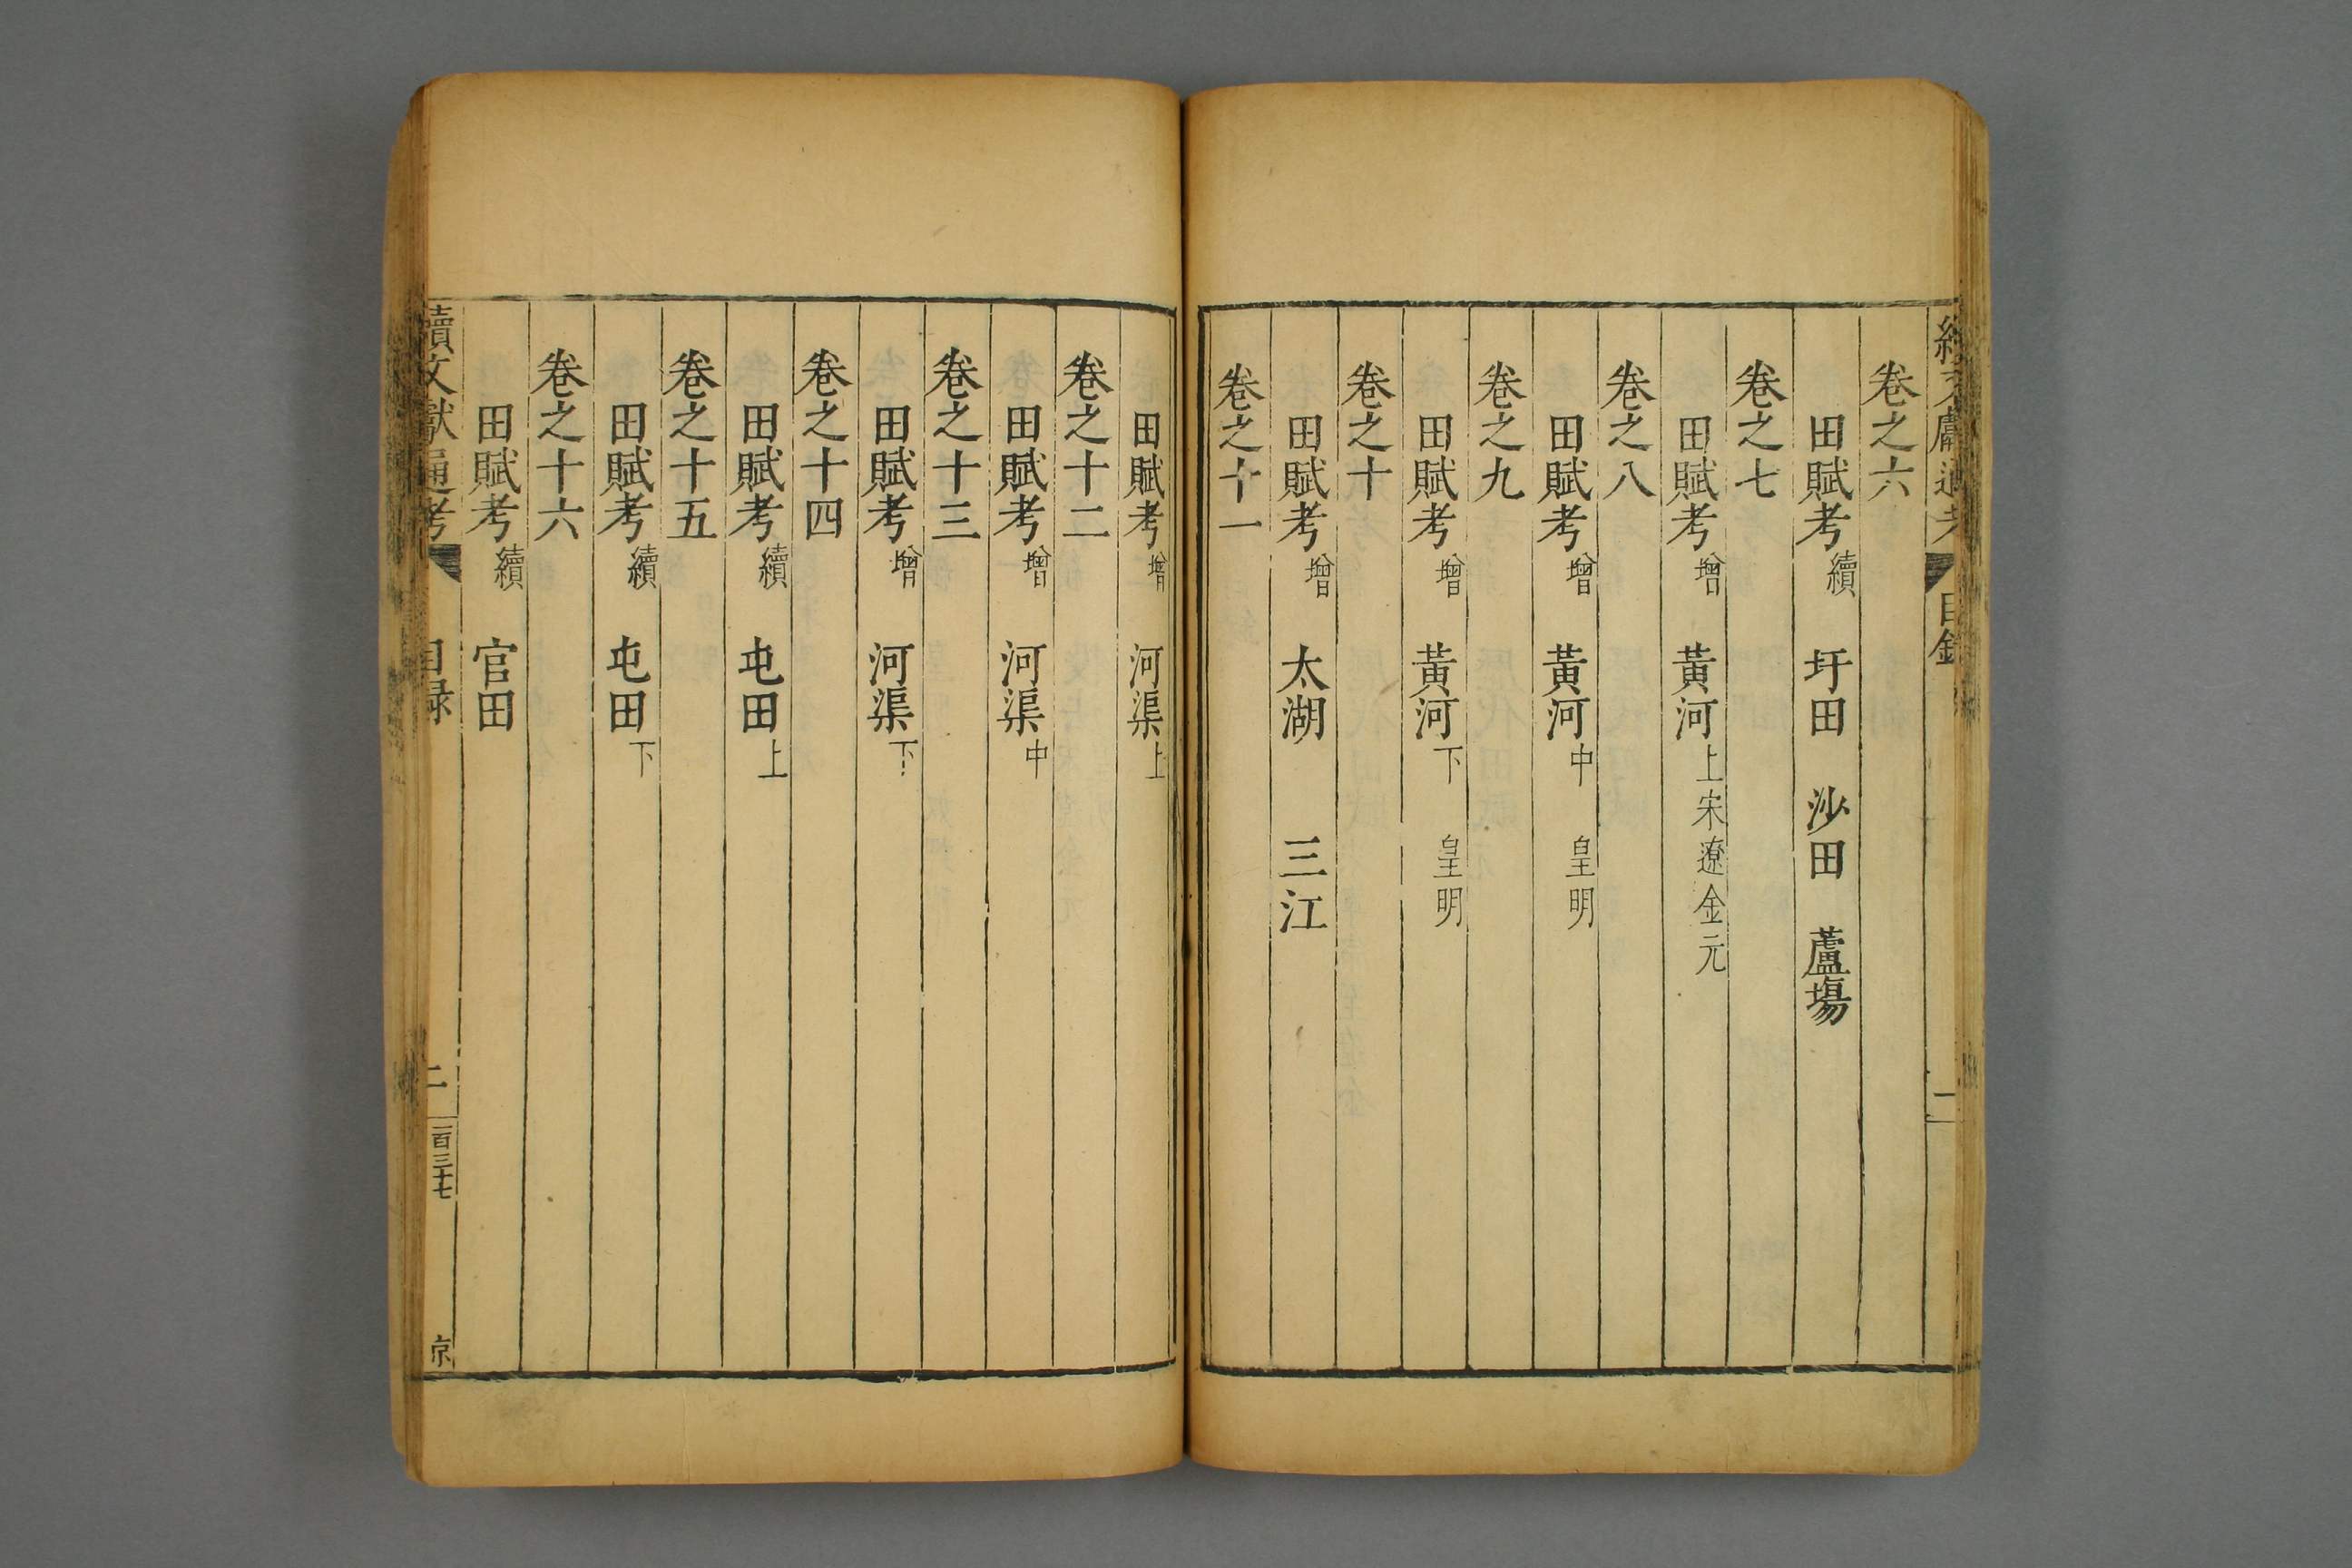 續文獻通考 目錄 一
卷之六
田賦考續 圩田 沙田 蘆場
卷之七
田賦考增 黃河上宋遼金元
卷之八
田賦考增 黃河中 皇明
卷之九
田賦考增 黃河下 皇明
卷之十
田賦考增 太湖 三江
卷之十一
田賦考增 河渠上
卷之十二
田賦考增 河渠中
卷之十三
田賦考增 河渠下
卷之十四
田賦考續 屯田上
卷之十五
田賦考續 屯田下
卷之十六
田賦考續 官田
續文獻通考 目録 二 一百三十七 京